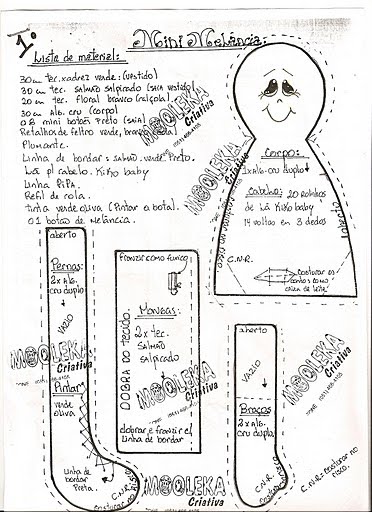 1º
Mini Melância:
Liste de material:
30 cm tec. xadrez verde: (vestido)
30 cm tec. salmão salpicado (saia vestido)
20 cm tec. floral branco (calçola)
30 cm alg. cru (corpo)
08 mini botão Preto (saia)
Retalhos de feltro verde, branco
Plumante.
Linha de bordar: salmão. verde. Preto.
Lã p/ cabelo. Kiko baby
Linha PiPA.
Refil de cola.
tinta verde oliva (Pintar a bota).
01 botão de Melância.
MOOLEKA
Criativa
MOOLEKA
Criativa
MOOLEKA
Criativa
Corpo:
1x Alg. cru duplo
Cabelo: 20 Rolinhos
de Lã Kiko baby
14 voltas em 3 dedos
C.N.R.
Costurar os
cantos como
caixa de leite
aberto
Pernas:
2x Alg.
cru duplo
VAZIO
MOOLEKA
Criativa
Pintar
verde
oliva
Linha de
bordar
Preta.
C.N.R.
Franzir como fuxico
DOBRA DO TECIDO.
Mangas:
2x tec.
SALMÃO
salpicado
MOOLEKA
Criativa
dobrar e franzir c/
Linha de bordar
aberto
VAZIO
Braços
2x Alg.
cru duplo.
C.N.R.
MOOLEKA
Criativa
C.N.R = costurar no
risco.
MOOLEKA
Criativa